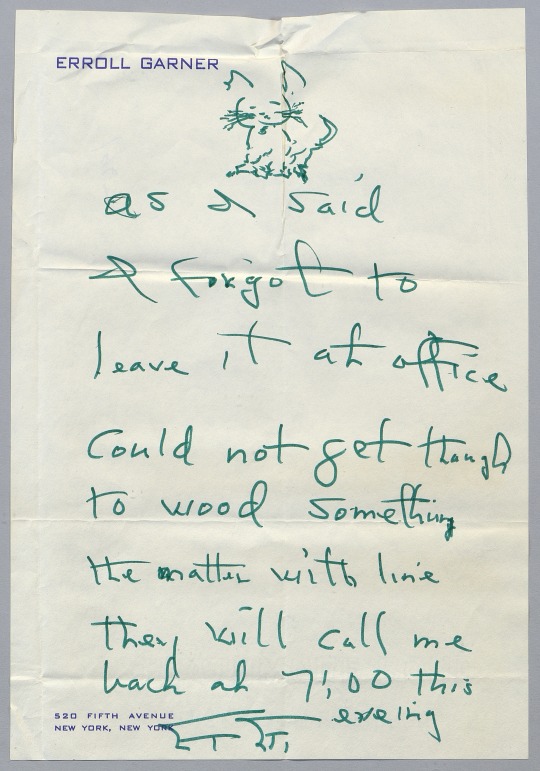 ERROLL GARNER
as I said
I forgot to
leave it at office
Could not get though
to wood something
the matter with line
they will call me
back at 7:00 this
eveing
520 FIFTH AVENUE
NEW YORK, NEW YORK